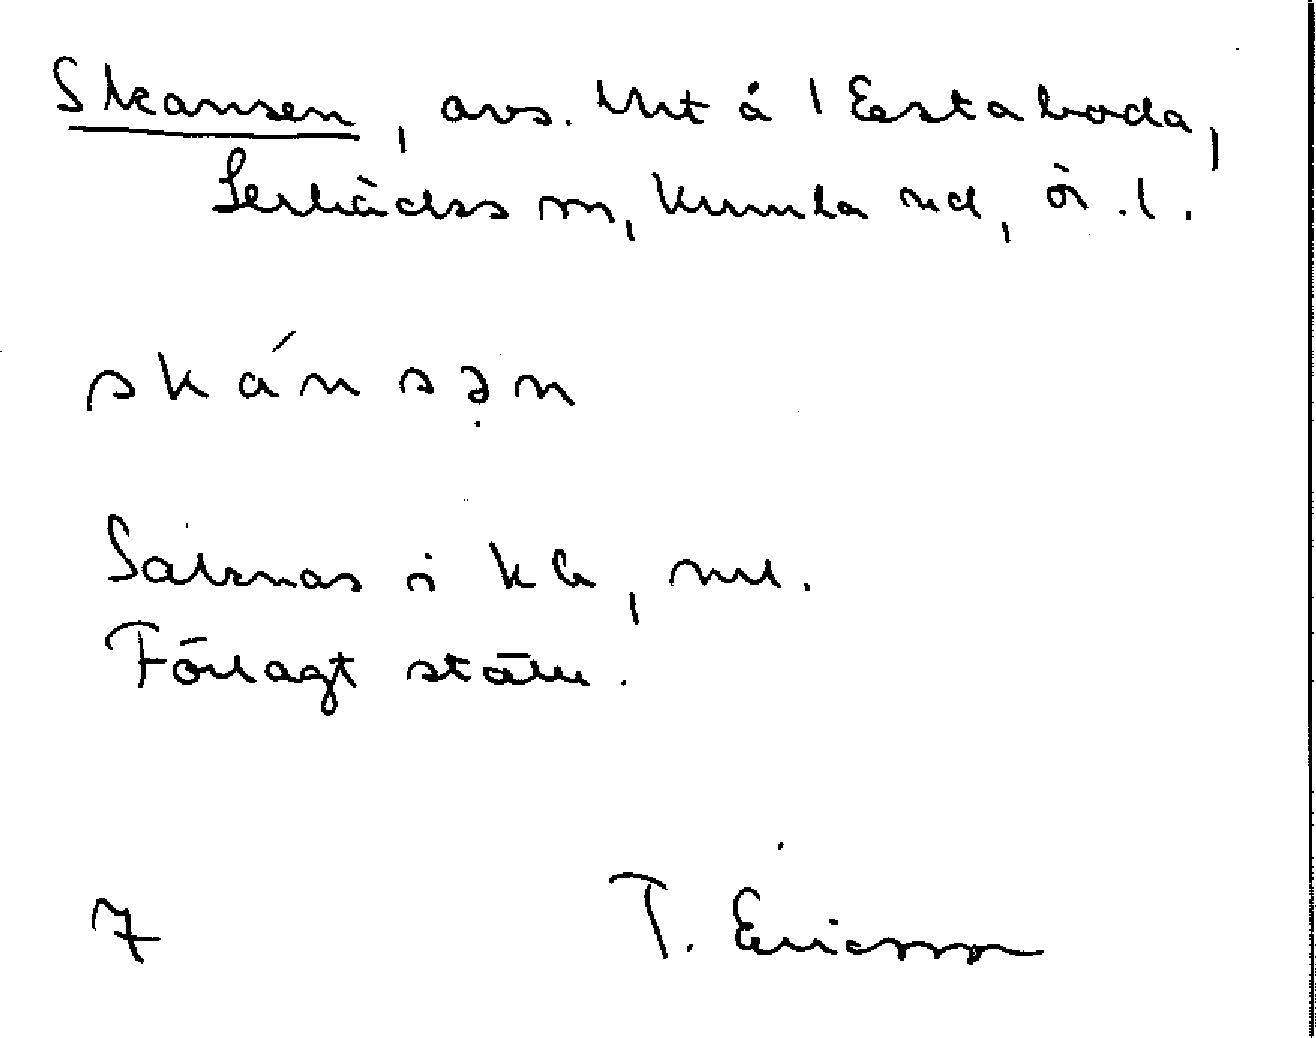 Skansen, avs. hmt å 1 Estaboda,
Lerbäcks sn, Kumla hd, ör. l.
skánsən
Saknas i kb, nu.
Förlagt ställe.
7
T. Ericsson